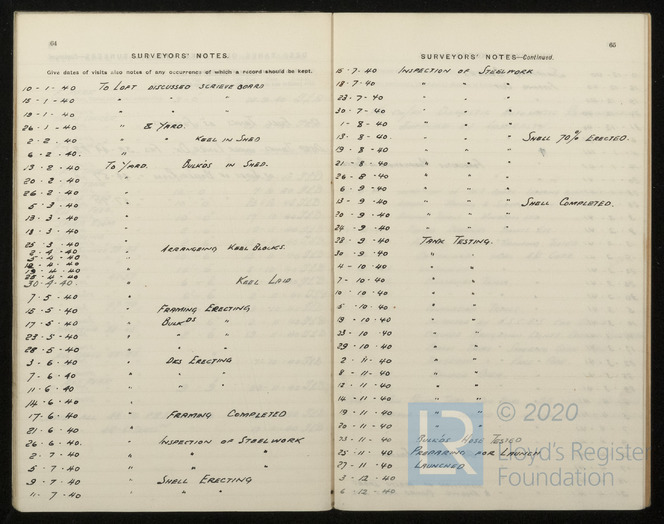 64
SURVEYORS' NOTES.
Give dates of visits also notes of any occurrence of which a record should be kept.
10 - 1 - 40 To Loft discussed scrieve board
15 - 1 - 40 " " " "
19 - 1 - 40 " " " "
26 - 1 - 40 " & Yard.
2 - 2 - 40 " " Keel in Shed
6 - 2 - 40. "
13 - 2 - 40 To Yard. Bulk'ds in Shed.
20 - 2 - 40
26 - 2 - 40 "
5 - 3 - 40 "
13 - 3 - 40 "
18 - 3 - 40 "
25 - 3 - 40 " Arrangeing Keel Blocks.
2 - 4 - 40
5 - 4 - 40 "
12 - 4 - 40 "
19 - 4 - 40
25 - 4 - 40
30 - 4 - 40 " Keel Laid
7 - 5 - 40 "
15 - 5 - 40 " Framing Erecting
17 - 5 - 40 " Bulkds "
23 - 5 - 40 " " "
28 - 5 - 40 " " "
3 - 6 - 40 " Dks Erecting
7 - 6 - 40 " " "
11 - 6 - 40 " " "
14 - 6 - 40 "
17 - 6 - 40 " Framing Completed
21 - 6 - 40 "
26 - 6 - 40. " Inspection of Steelwork
2 - 7 - 40 " " "
5 - 7 - 40 " " "
9 - 7 - 40 " Shell Erecting
11 - 7 - 40 " " "
65
SURVEYORS' NOTES—Continued.
15 - 7 - 40 Inspection of Steelwork
18 - 7 - 40 " " "
23 - 7 - 40 " " "
30 - 7 - 40 " " "
1 - 8 - 40 " " "
13 - 8 - 40 " " " Shell 70% Erected.
19 - 8 - 40 " " "
21 - 8 - 40 " " "
26 - 8 - 40 " " "
6 - 9 - 40 " " "
13 - 9 - 40 " " " Shell Completed.
20 - 9 - 40 " " "
24 - 9 - 40 " " "
28 - 9 - 40 Tank Testing.
30 - 9 - 40 " "
4 - 10 - 40 " "
7 - 10 - 40 " "
10 - 10 - 40 " "
- 10 - 40 " "
19 - 10 - 40 " "
23 - 10 - 40 " "
29 - 10 - 40 " "
2 - 11 - 40 " "
8 - 11 - 40 " "
12 - 11 - 40 " "
14 - 11 - 40 " "
19 - 11 - 40 " "
20 - 11 - 40 " "
23 - 11 - 40 Bulk'ds Hose Tested
25 - 11 - 40 Preparing for Launch
27 - 11 - 40 Launched
3 - 12 - 40
6 - 12 - 40
LR
© 2020
Lloyd's Register
Foundation